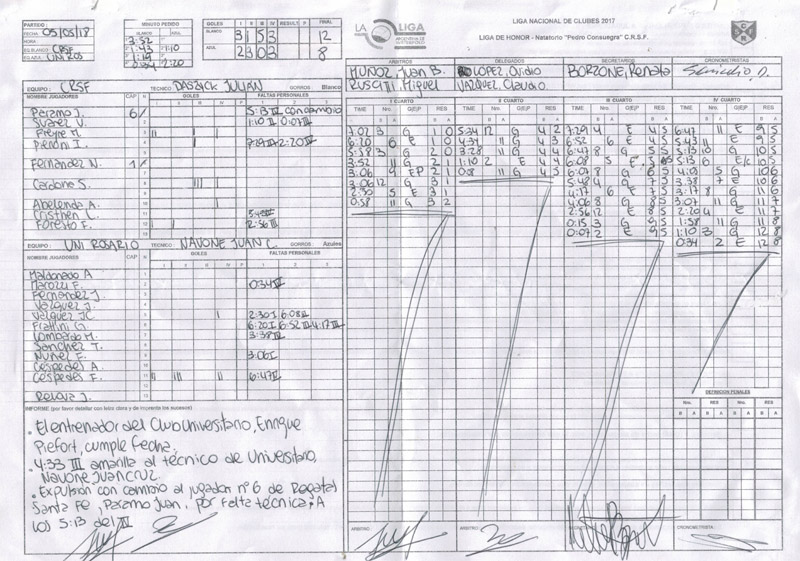 LIGA NACIONAL DE CLUBES 2017
LIGA DE HONOR - Natatorio "Pedro Consuegra" C.R.S.F.
LA LIGA
PARTIDO :
FECHA : 05/05/18
HORA
EQ.BLANCO : CRSF
EQ.AZUL : UNI ROS
MINUTO PEDIDO
BLANCO AZUL
3:52
1:43 1:10
1:19
0:34 2:20
GOLES I II III IV RESULT. P FINAL
BLANCO 3 1 5 3 12
AZUL 2 3 0 3 8
ARBITROS DELEGADOS SECRETARIA CRONOMETRISTAS
MUÑOZ, Juan B. LOPEZ, Ovidio BORZONE, Renata
RUSCITTI, Miguel VAZQUEZ, Claudio
EQUIPO : CRSF TECNICO DABRICK JULIAN GORROS : Blanco
NOMBRE JUGADORES CAP N GOLES FALTAS PERSONALES
I II III IV P 1 2 3
Paramo J. 6 5:13 IV con cambio
Suarez V. 1:10 II 0:07 III
Freyre M.
Pieroni I. 7:29 III 2:20 IV
Fernandez N. 1
Cardone S.
Abelenda A.
Cristhen L.
Foresto F. 2:56 III
EQUIPO : UNI ROSARIO TECNICO NAVONE JUAN C. GORROS : Azules
NOMBRE JUGADORES CAP N GOLES FALTAS PERSONALES
I II III IV P 1 2 3
Maldonado A
Marozzi F. 0:34 IV
Fernandez J.
Vazquez J.
Vazquez JC 2:30 I 6:08 III
Frattini G. 6:20 I 6:52 III 4:17 III
Lombardo M. 3:38 IV
Sanchez T.
Nuñez F. 3:06 I
Cespedes A.
Cespedes F. 6:47 IV
Reloja J.
I CUARTO II CUARTO III CUARTO IV CUARTO
TIME Nro. G/E/P RES
B A B A
7:02 3 G 1 0
6:20 6 E 1 0
5:58 3 G 2 0
3:52 11 G 2 1
3:06 9 EP 2 1
3:06 12 G 3 1
2:30 5 E 3 1
0:58 11 G 3 2
5:34 12 G 4 2
4:34 11 G 4 3
3:28 11 G 4 4
1:10 2 E 4 4
0:8 11 G 4 5
7:29 4 E 4 5
6:52 6 E 4 5
6:47 8 G 5 5
6:08 5 E 5 5
6:07 8 G 6 5
5:48 4 G 7 5
4:17 6 E 7 5
4:06 8 G 8 5
2:56 12 E 8 5
0:15 3 G 9 5
0:07 2 E 9 5
6:47 11 E 9 5
5:43 11 E 9 5
5:13 10 G 10 5
5:13 6 E/C 10 5
4:09 5 G 10 6
3:38 7 E 10 6
3:17 8 G 11 6
3:07 11 G 11 7
2:20 4 E 11 7
1:58 11 G 11 8
1:10 3 G 12 8
0:34 2 E 12 8
DEFINICION PENALES
Nro. RES Nro. RES
B A B A B A B A
INFORME (por favor detallar con letra clara y de imprenta los sucesos)
• El entrenador del Club Universitario, Enrique
Piefort, cumple fecha.
• 4:33 III amarilla al técnico de Universitario,
Navone Juan Cruz.
• Expulsión con cambio al jugador nº 6 de Regatas
Santa Fe, Paramo Juan, por falta técnica, A
los 5:13 del IV
ARBITRO: ARBITRO: CRONOMETRISTA: